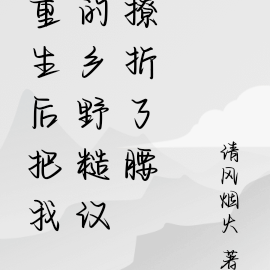 重生后把我
的乡野糙汉
撩折了腰
清风烟火 著